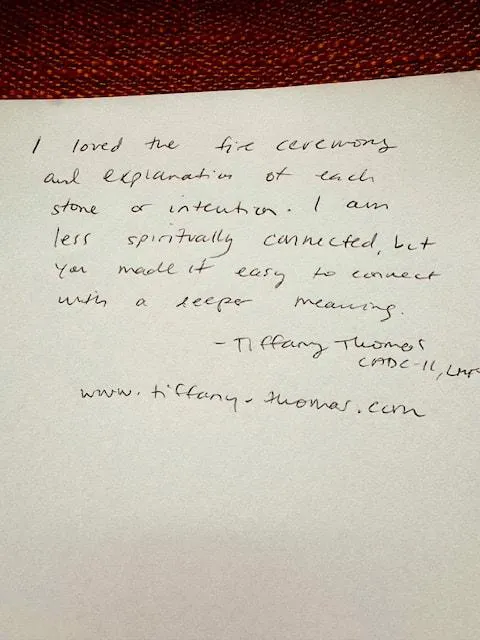 I loved the fire ceremony
and explanation of each
stone or intention. I am
less spiritually connected, but
you made it easy to connect
with a deeper meaning.
- Tiffany Thomas
CADC-II, LMF
www.tiffany-thomas.com